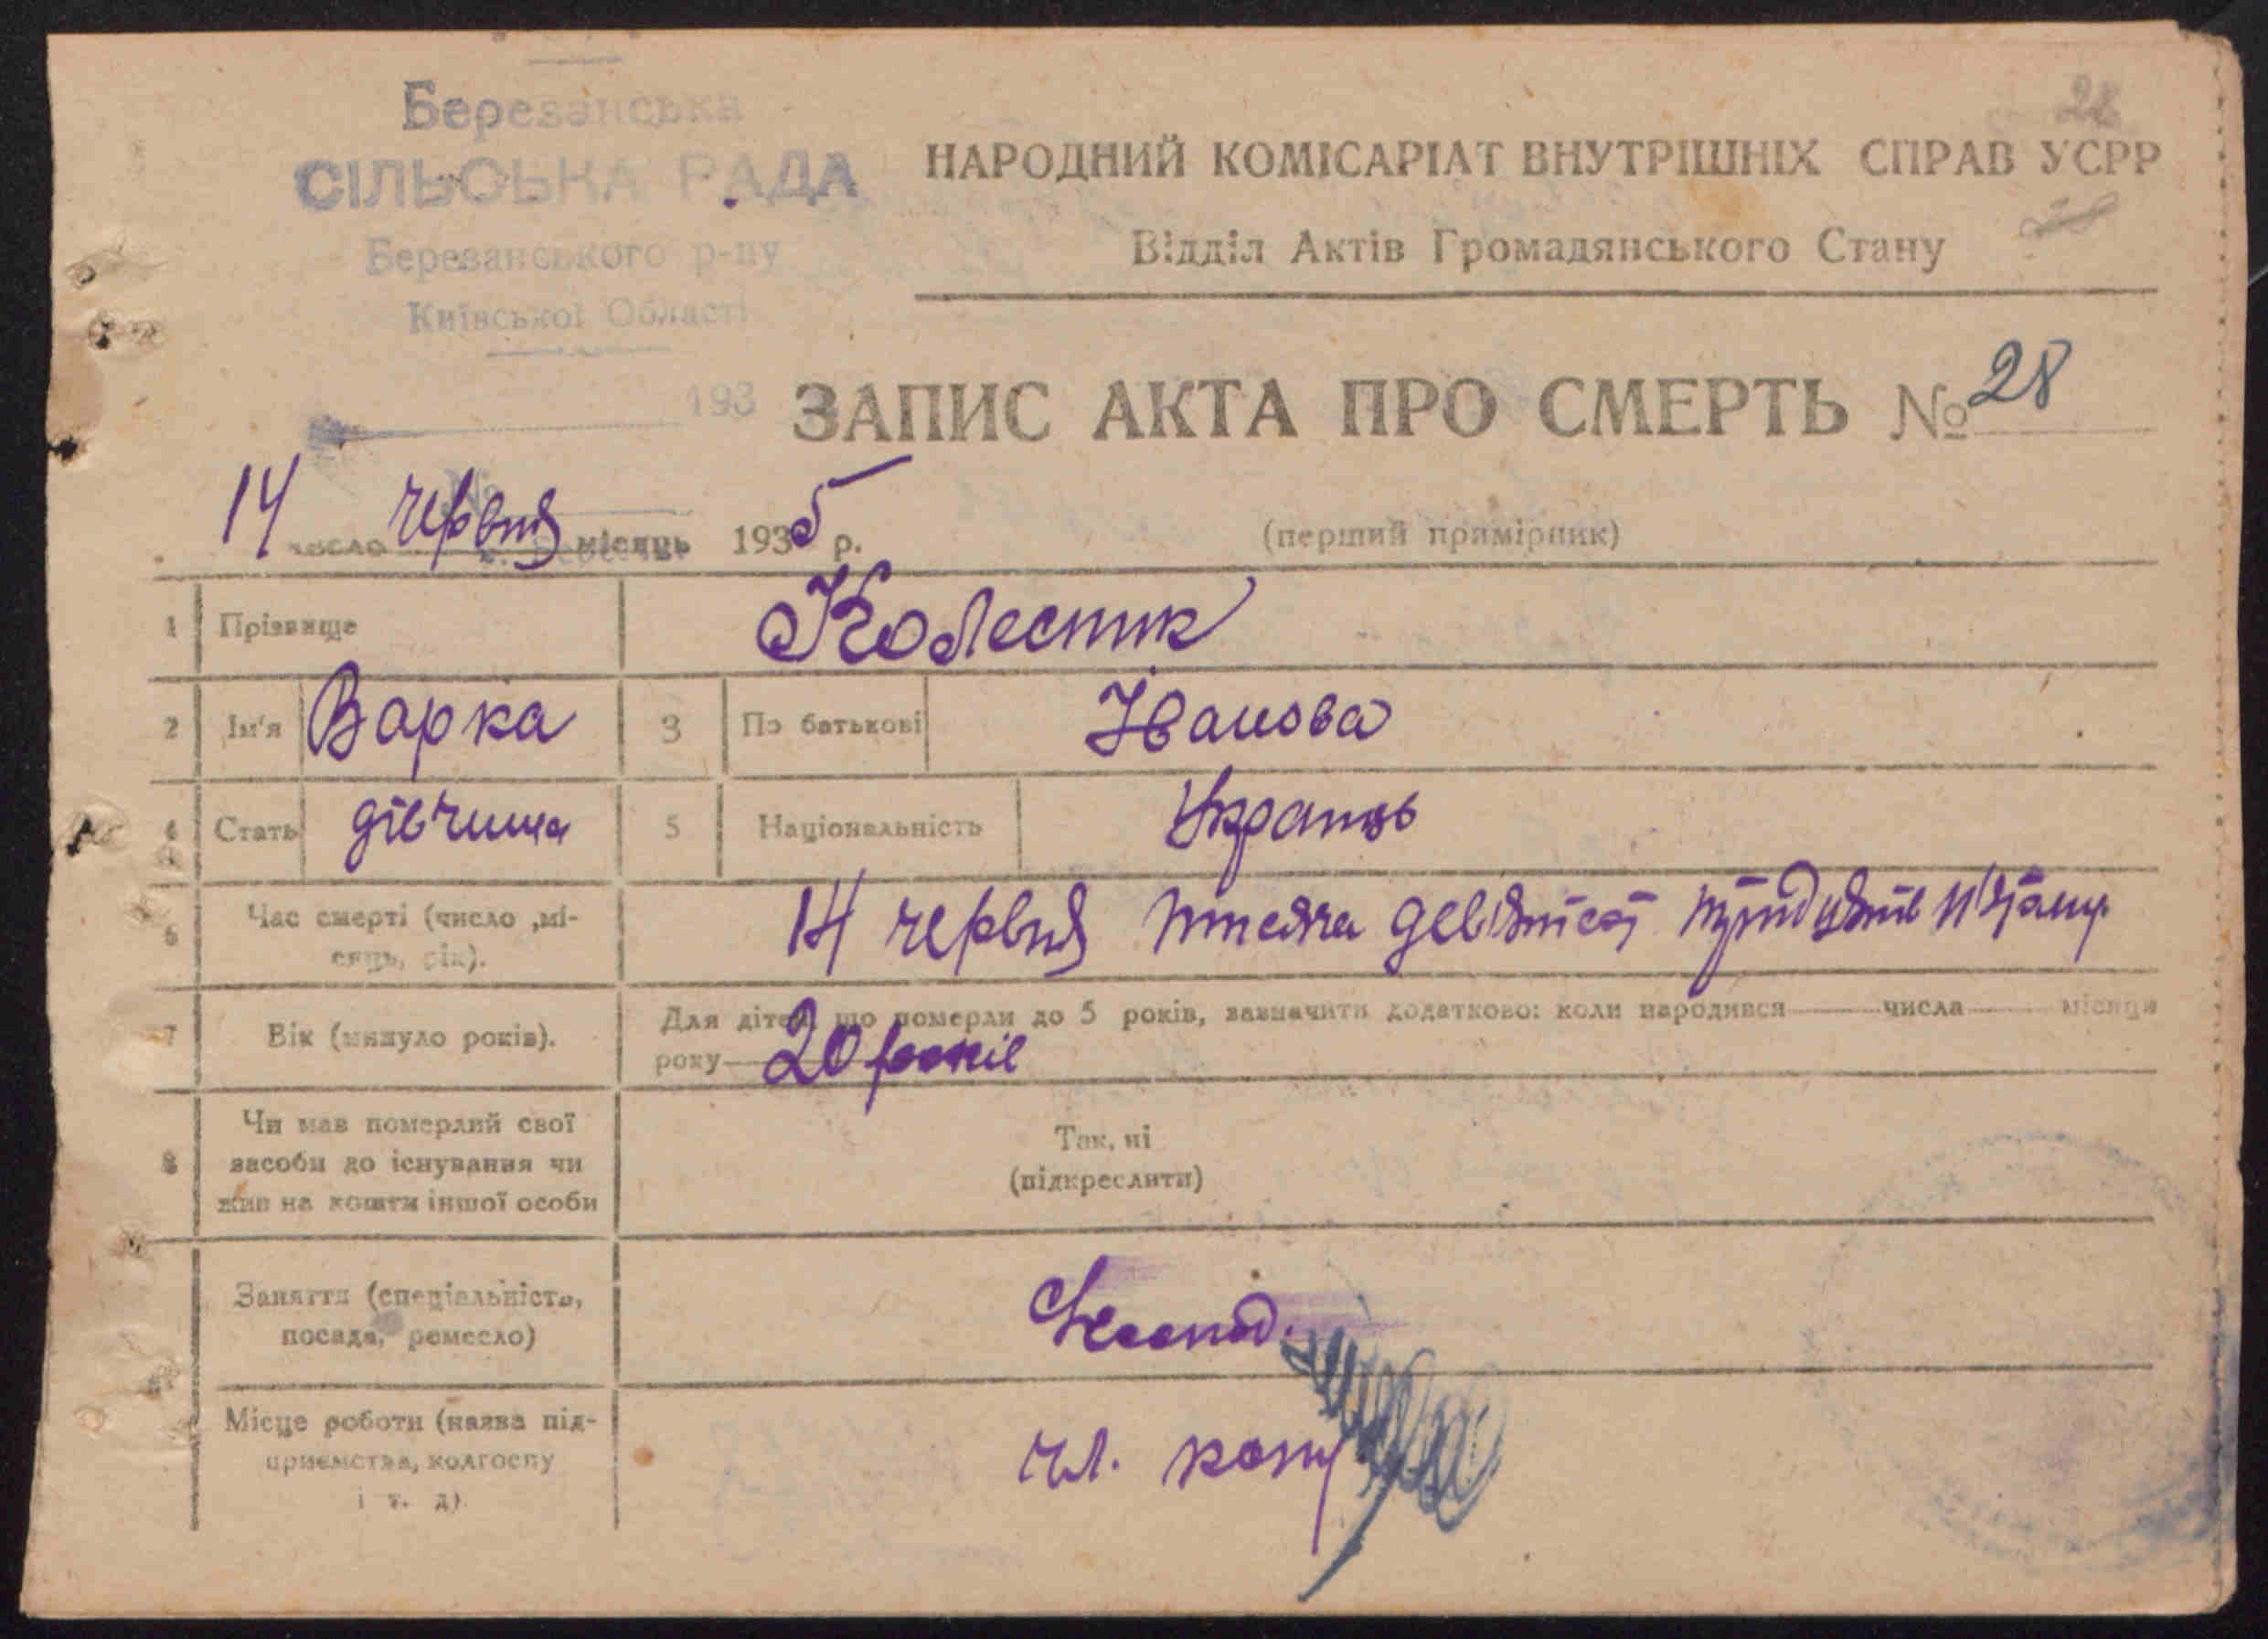 28
Березанська
СІЛЬСЬКА РАДА
Березанського р-ну
Київської Області
193
НАРОДНИЙ КОМІСАРІАТ ВНУТРІШНІХ СПРАВ УСРР
Відділ Актів Громадянського Стану
ЗАПИС АКТА ПРО СМЕРТЬ № 28
14 число червня місяць 1935 р.
(перший примірник)
1 Прізвище Колесник
2 Ім'я Варка 3 По батькові Іванова
4 Стать дівчина 5 Національність
6 Час смерті (число ,мі-
сяць, рік).
14 червня тисяча
7 Вік (минуло років).
Для дітей, що померли до 5 років, зазначити додатково: коли народився числа місяця
року 20 років
8 Чи мав померлий свої
засоби до існування чи
жив на кошти іншої особи
Так, ні
(підкреслити)
Заняття (спеціальність,
посада, ремесло)
Місце роботи (назва під-
приємства, колгоспу
і т. д)
чл.